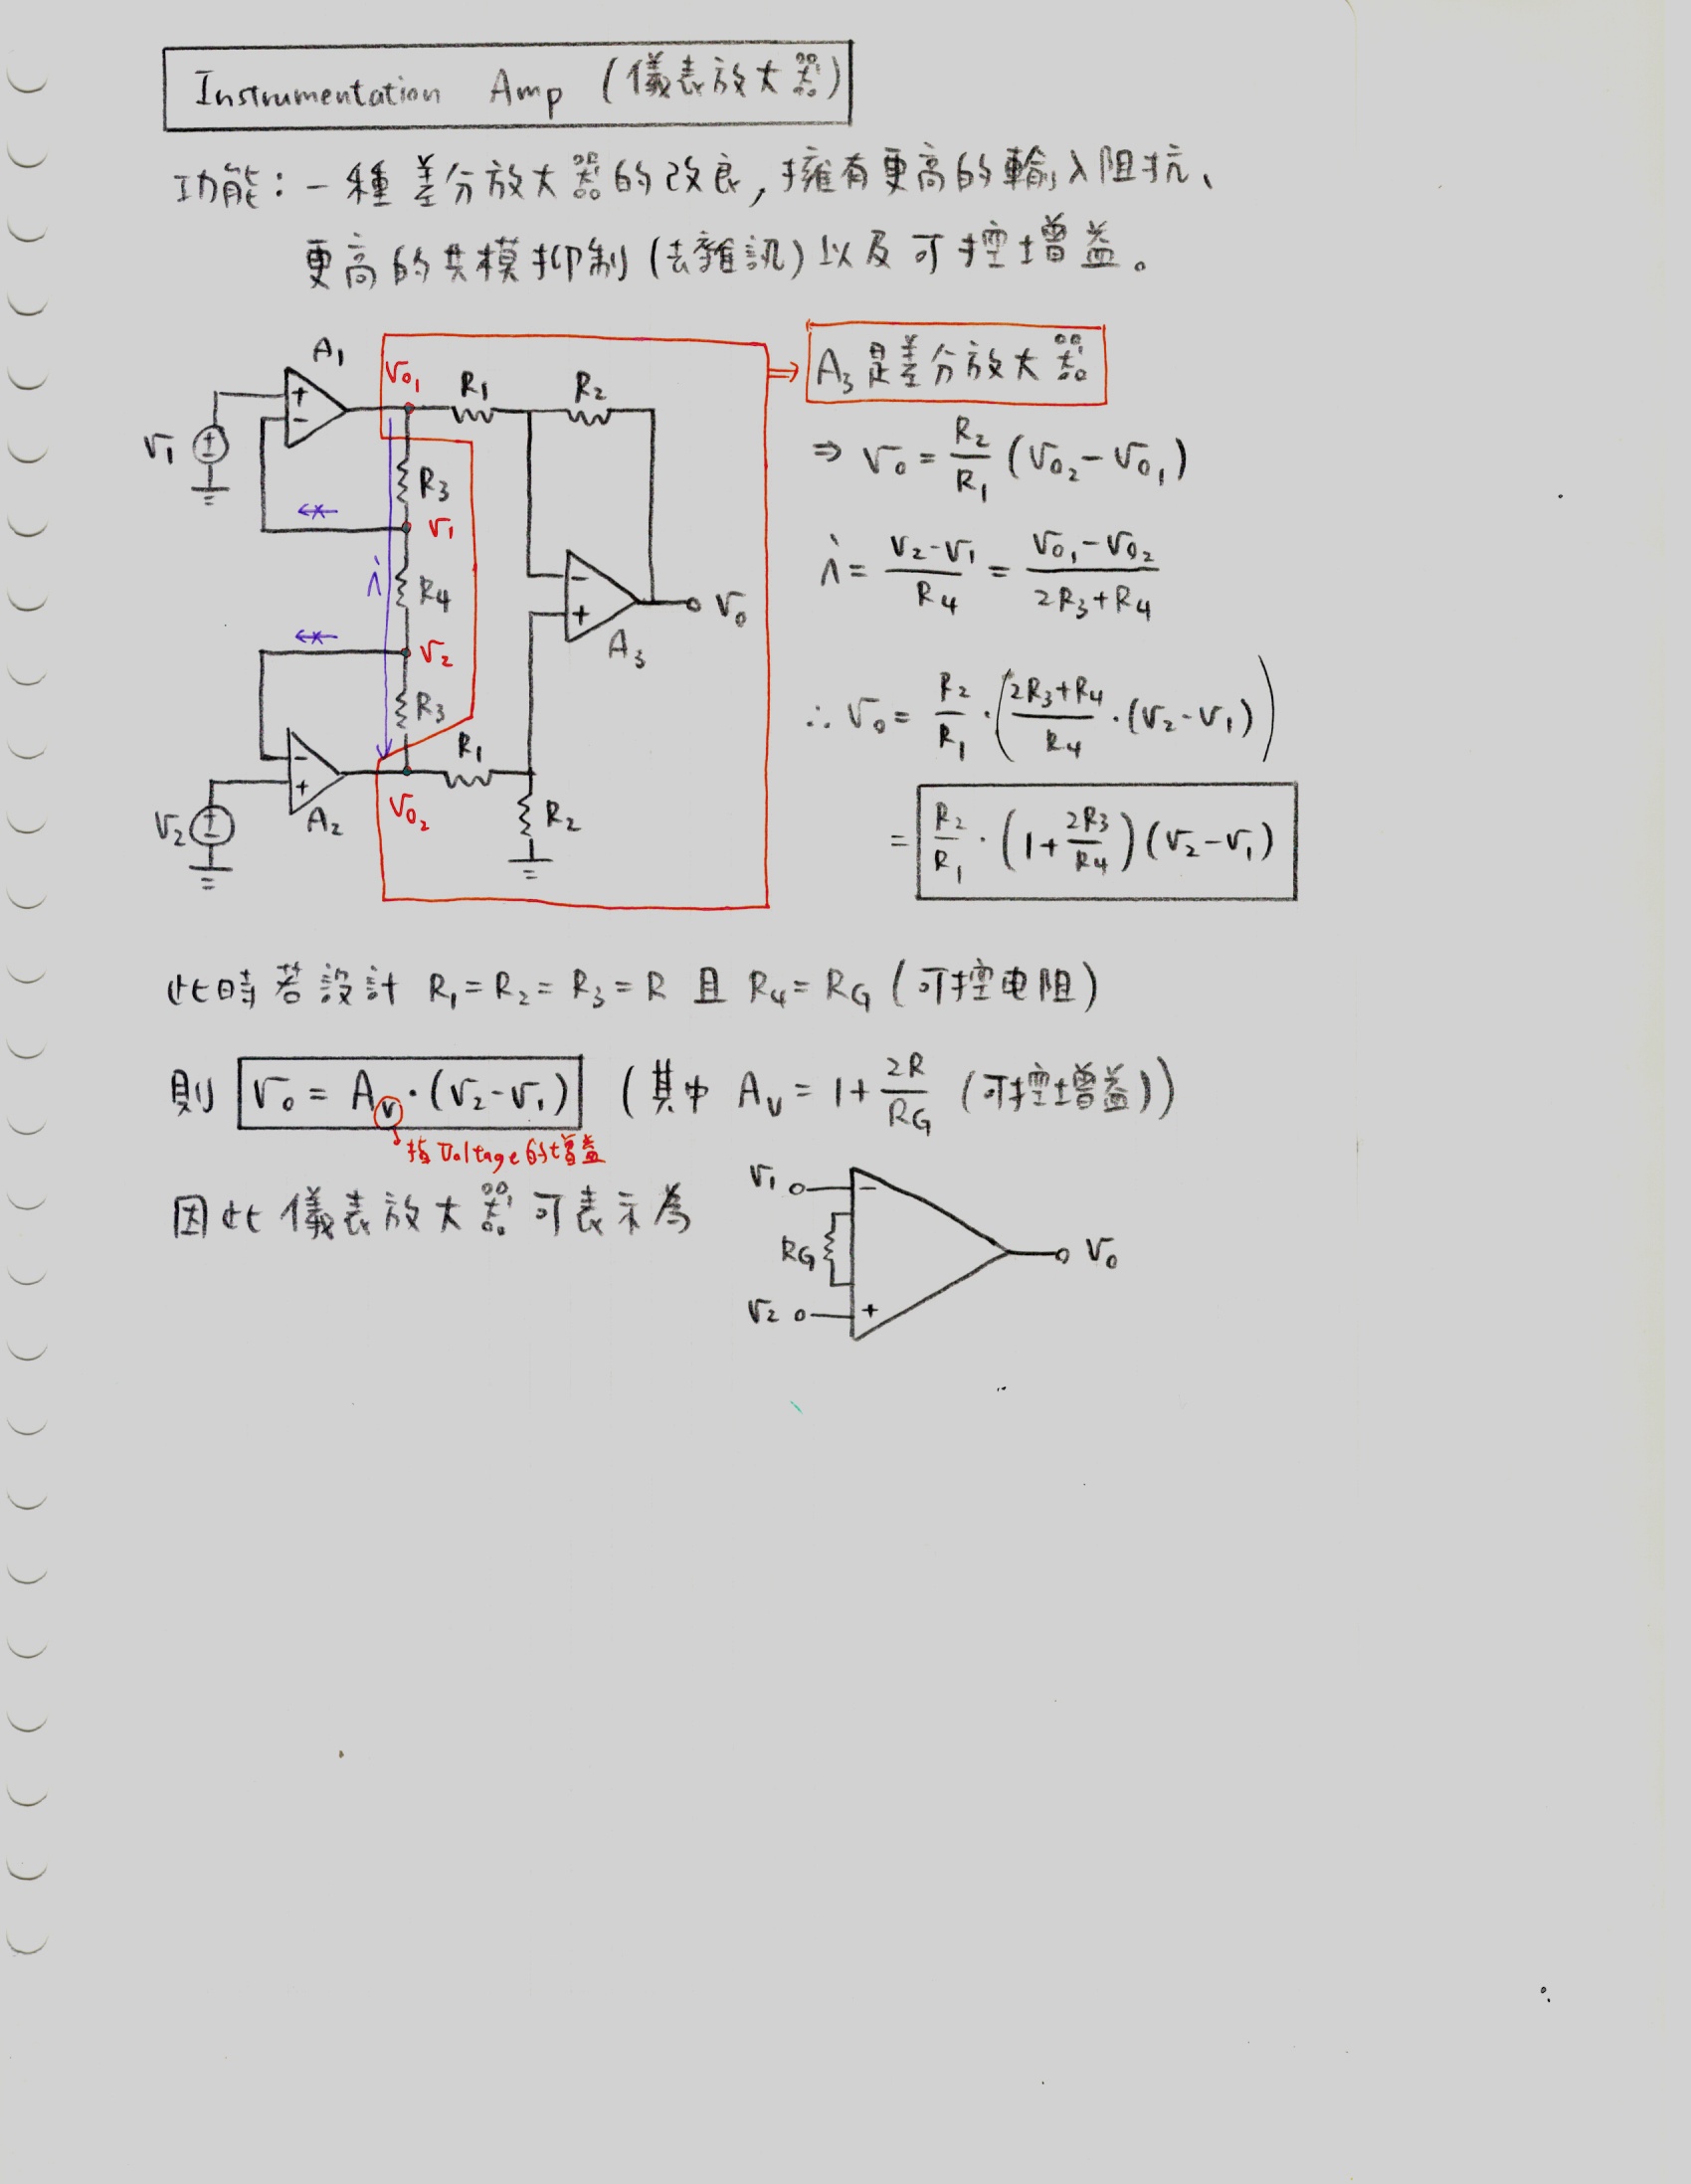 Instrumentation Amp (儀表放大器)
功能:一種差分放大器的改良,擁有更高的輸入阻抗、
更高的共模抑制(去雜訊)以及可控增益。
A₁
V₁
V₀₁
R₁
R₂
R₃
V₁
i
R₄
V₂
R₃
A₃
V₀
R₁
V₂
A₂
V₀₂
R₂
⇒ A₃是差分放大器
⇒ V₀ = R₂/R₁ (V₀₂ - V₀₁)
i = (V₂-V₁)/R₄ = (V₀₁-V₀₂)/(2R₃+R₄)
∴ V₀ = R₂/R₁ · ((2R₃+R₄)/R₄ · (V₂-V₁))
= R₂/R₁ · (1+2R₃/R₄)(V₂-V₁)
此時若設計 R₁=R₂=R₃=R 且 R₄=RG (可控电阻)
則 V₀ = Av·(V₂-V₁) (其中 Av = 1+2R/RG (可控增益))
指Voltage的增益
因此儀表放大器可表示為
V₁
RG
V₂
V₀